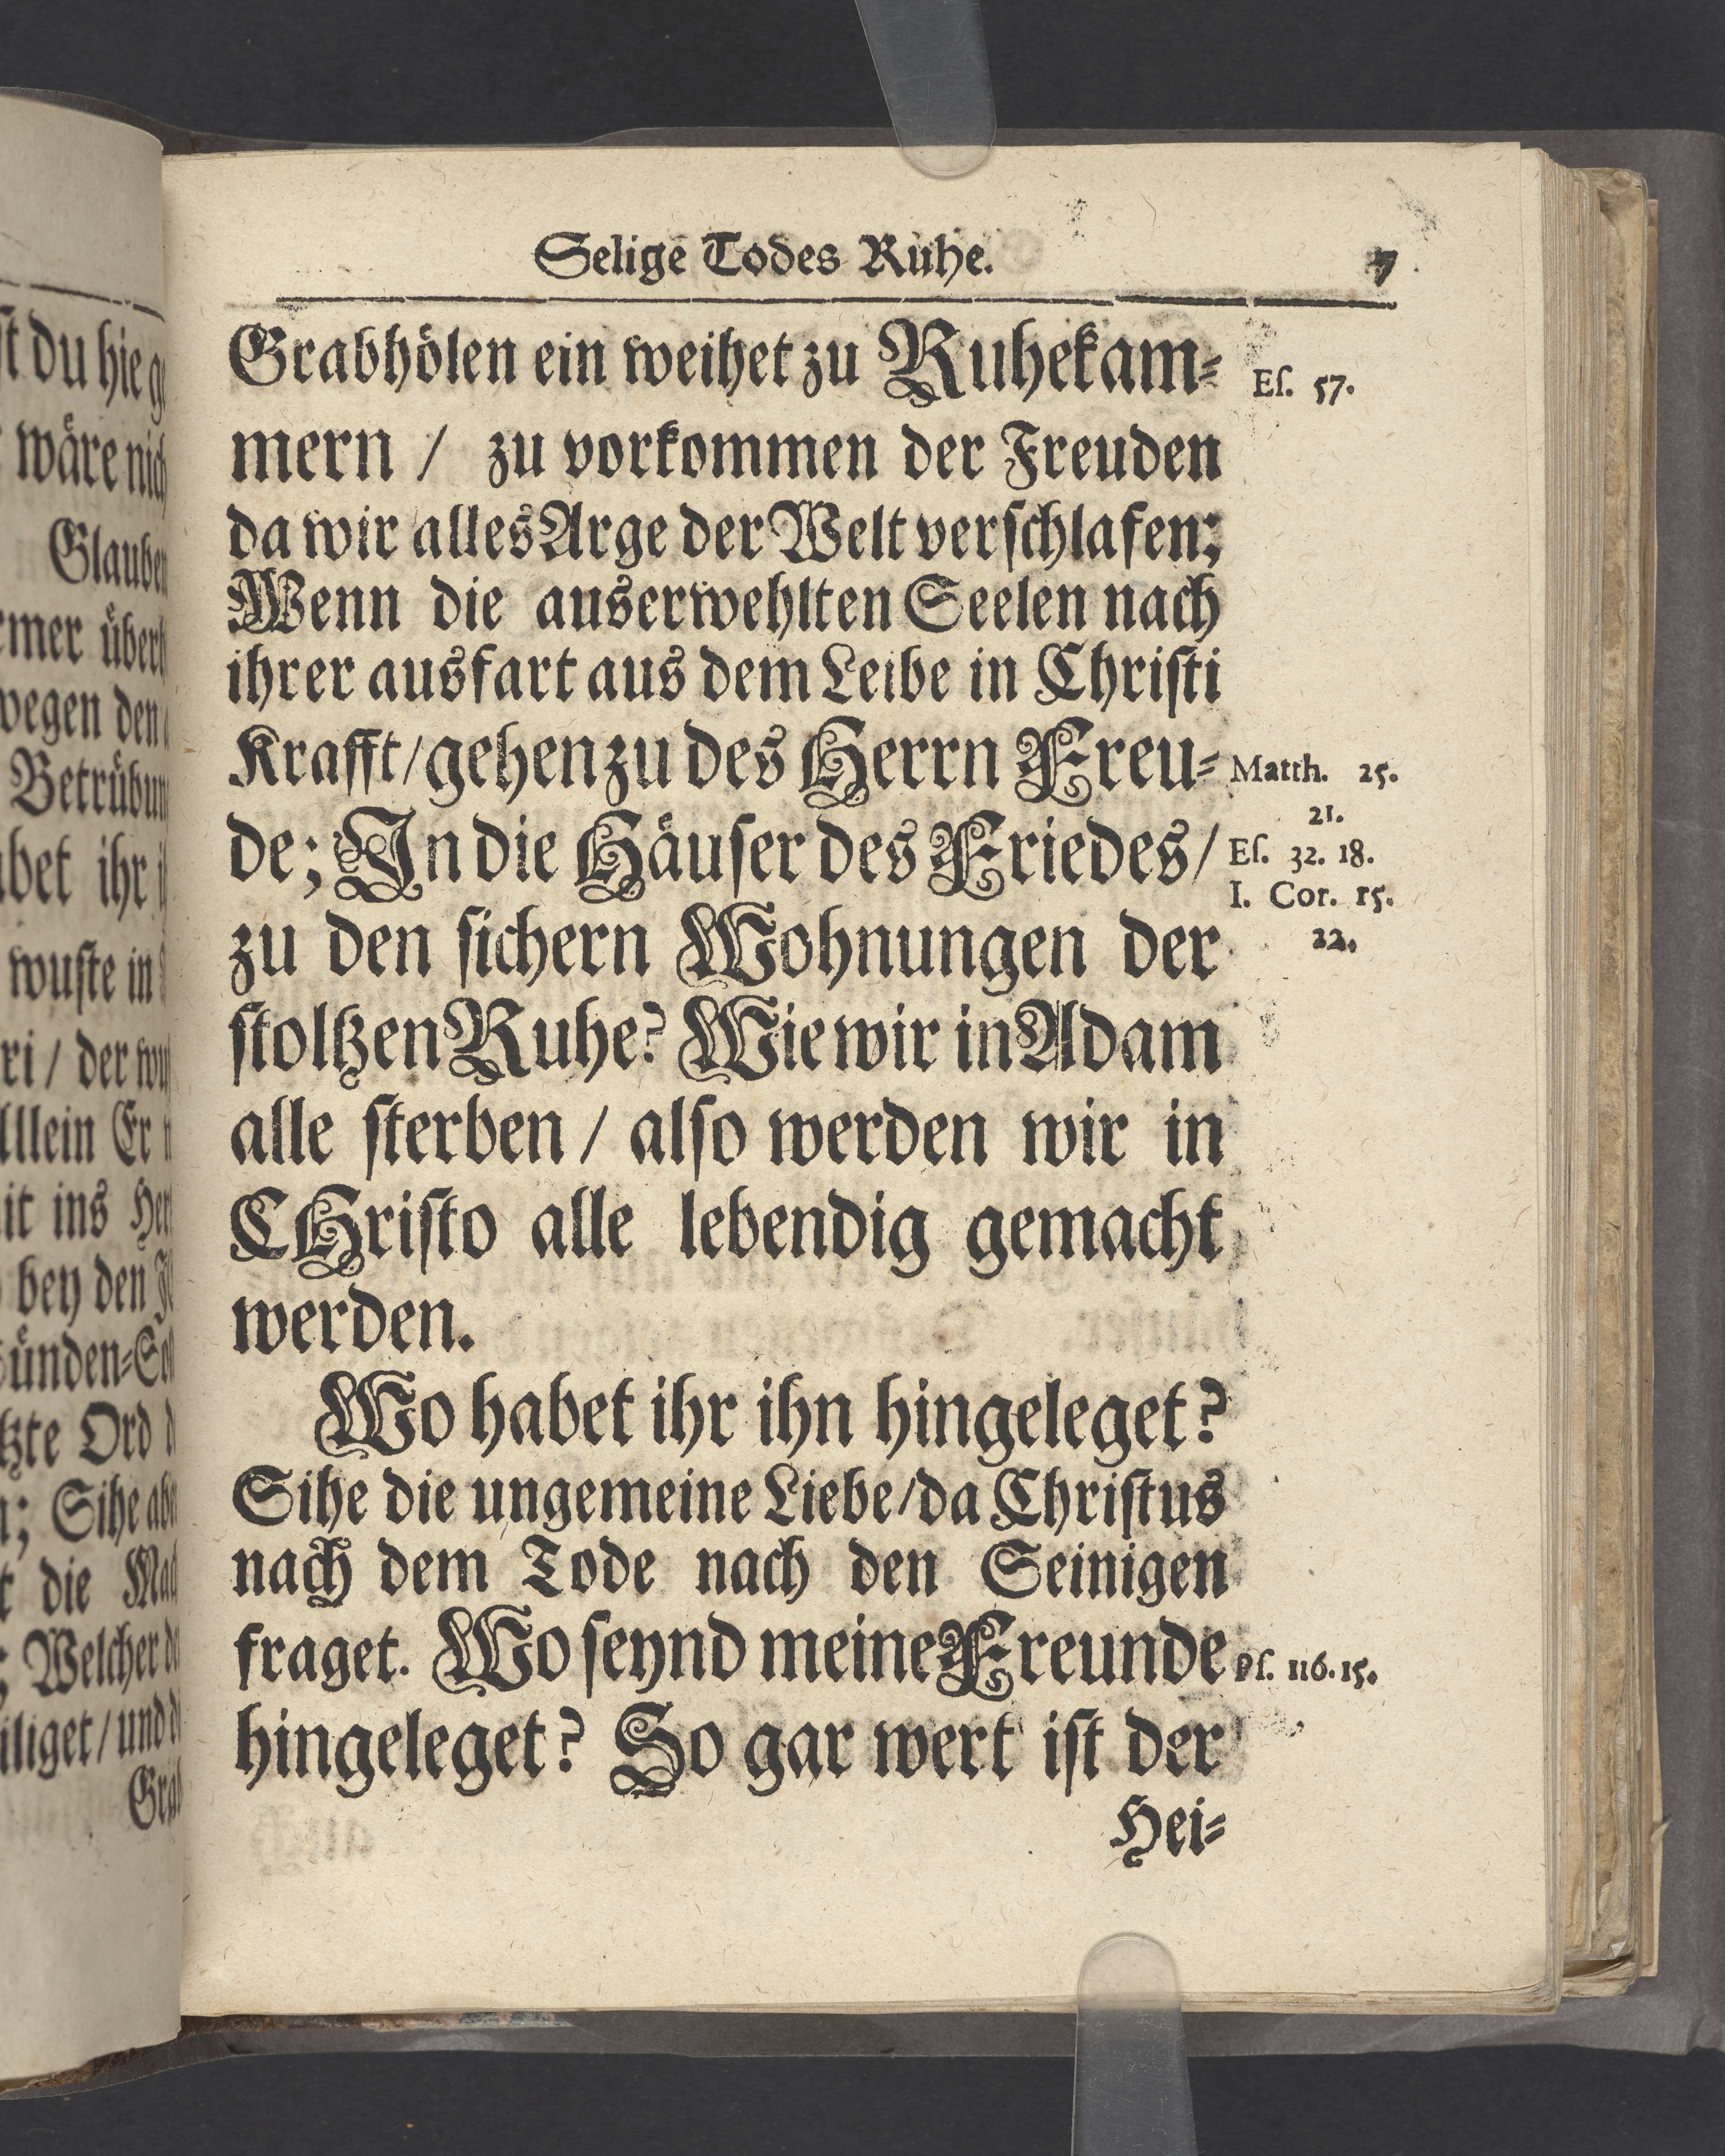 Selige Todes Ruhe. 7
Grabhölen ein weihet zu Ruhekam-
Eſ. 57.
mern / zu vorkommen der Freuden
da wir alles Arge der Welt verſchlafen;
Wenn die auserwehlten Seelen nach
ihrer ausfart aus dem Leibe in Chriſti
Krafft/gehen zu des Herrn Freu-
Matth. 25.
21.
de; In die Häuſer des Friedes/
Eſ. 32. 18.
I. Cor. 15.
22.
zu den ſichern Wohnungen der
ſtoltzen Ruhe? Wie wir in Adam
alle ſterben / alſo werden wir in
CHriſto alle lebendig gemacht
werden.
Wo habet ihr ihn hingeleget?
Sihe die ungemeine Liebe/da Chriſtus
nach dem Tode nach den Seinigen
fraget. Wo ſeynd meine Freunde
Pſ. 116. 15.
hingeleget? So gar wert iſt der
Hei-
ſt du hie
wäre
Glauben
überh
wegen den
Betrübun
ihr
wuſte in
ri / der
Er
it ins
bey den
Ord
; Sihe
die
; Welcher
/ und
Grab